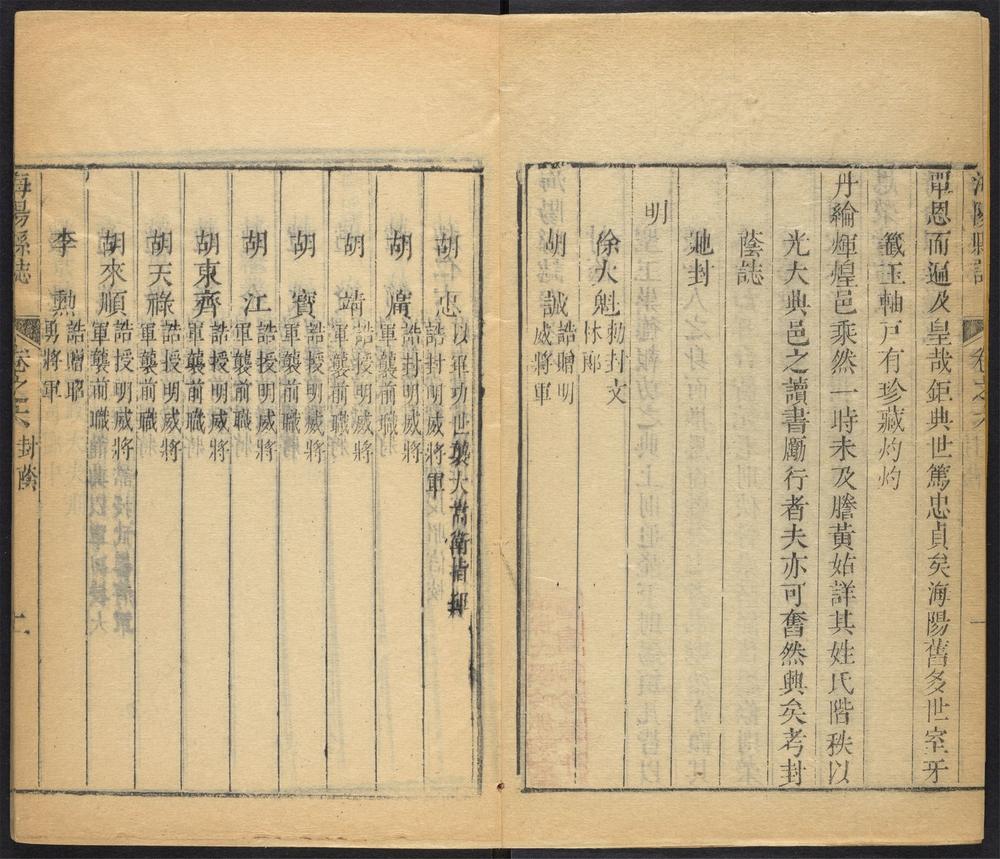 海陽縣誌
卷之六
一
覃恩而遍及皇哉鉅典世篤忠貞矣海陽舊多世室牙
籤玉軸戸有珍藏灼灼
丹綸煇煌邑乘然一時未及謄黃姑詳其姓氏階秩以
光大典邑之讀書勵行者夫亦可奮然興矣考封
蔭誌
馳封
明
徐大魁
勑封文
林郎
胡誠
誥贈明
威將軍
胡忠
以軍功世襲大嵩衛指揮
誥封明威將軍
胡廣
誥封明威將
軍襲前職
胡靖
誥授明威將
軍襲前職
胡寶
誥授明威將
軍襲前職
胡江
誥授明威將
軍襲前職
胡東齊
誥授明威將
軍襲前職
胡天祿
誥授明威將
軍襲前職
胡來順
誥授明威將
軍襲前職
李勲
誥贈昭
勇將軍
海陽縣誌
卷之六
封蔭
二